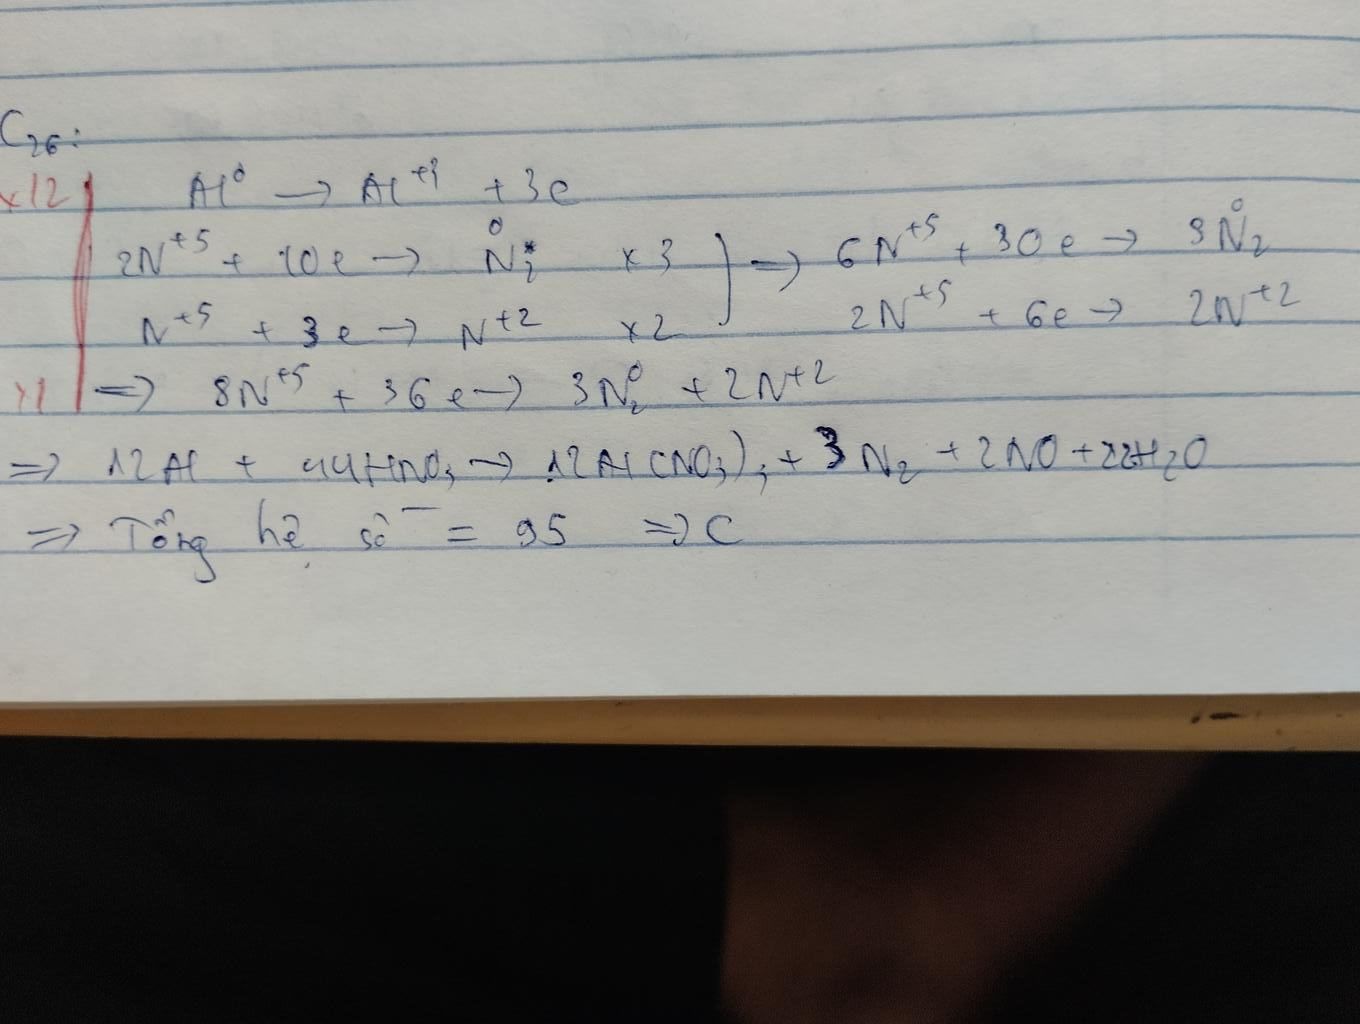 C₂₆:
x12 Al⁰ → Al⁺³ + 3e
2N⁺⁵ + 10e → N₂⁰ x3 } ⇒ 6N⁺⁵ + 30e → 3N₂⁰
N⁺⁵ + 3e → N⁺² x2 2N⁺⁵ + 6e → 2N⁺²
x1 ⇒ 8N⁺⁵ + 36e → 3N₂⁰ + 2N+2
⇒ 12Al + 44HNO₃ → 12Al(NO₃)₃ + 3N₂ + 2NO + 22H₂O
⇒ Tổng hệ số = 95 ⇒ C